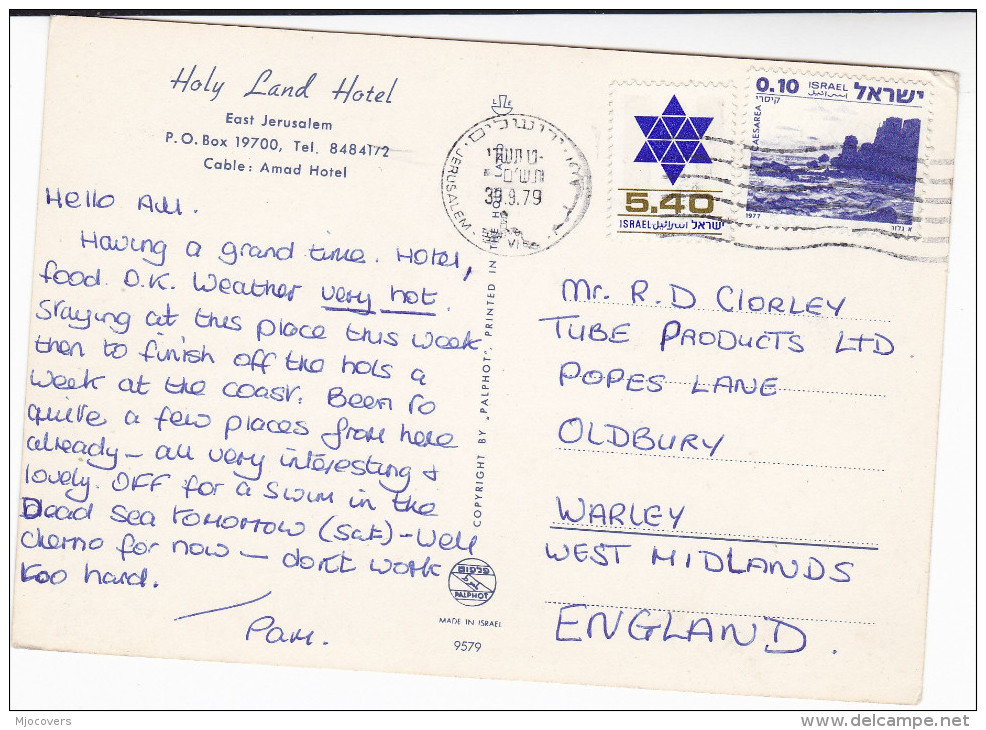 Holy Land Hotel
East Jerusalem
P.O.Box 19700, Tel. 84841/2
Cable: Amad Hotel
Hello All.
Having a grand time. Hotel,
food O.K. Weather very hot.
Staying at this place this week
then to finish off the hols a
week at the coast. Been to
quite a few places from here
already – all very interesting &
lovely. Off for a swim in the
Dead Sea tomorrow (sat) – Well
cheerio for now – don't work
too hard.
Pam.
ירושלים
JERUSALEM
39.9.79
5.40
ISRAEL اسرائيل ישראל
0.10 ISRAEL اسرائيل ישראל
קיסרי
CAESAREA
1977
COPYRIGHT BY „PALPHOT", PRINTED IN
PALPHOT
MADE IN ISRAEL
9579
Mr. R. D CLORLEY
TUBE PRODUCTS LTD.
POPES LANE
OLDBURY
WARLEY
WEST MIDLANDS
ENGLAND.
Mjocovers
www.delcampe.net